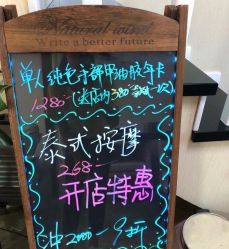 Natural wind
Write a better future
单人纯色手部甲油胶年卡
1280
(送店内380款式一次)
泰式按摩
268
开店特惠
冲2000一9折